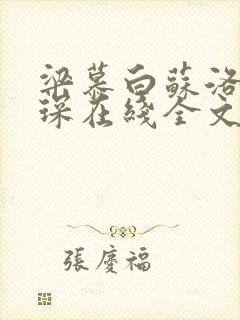 梁慕白蘇洛
琛在綫全文
張慶福